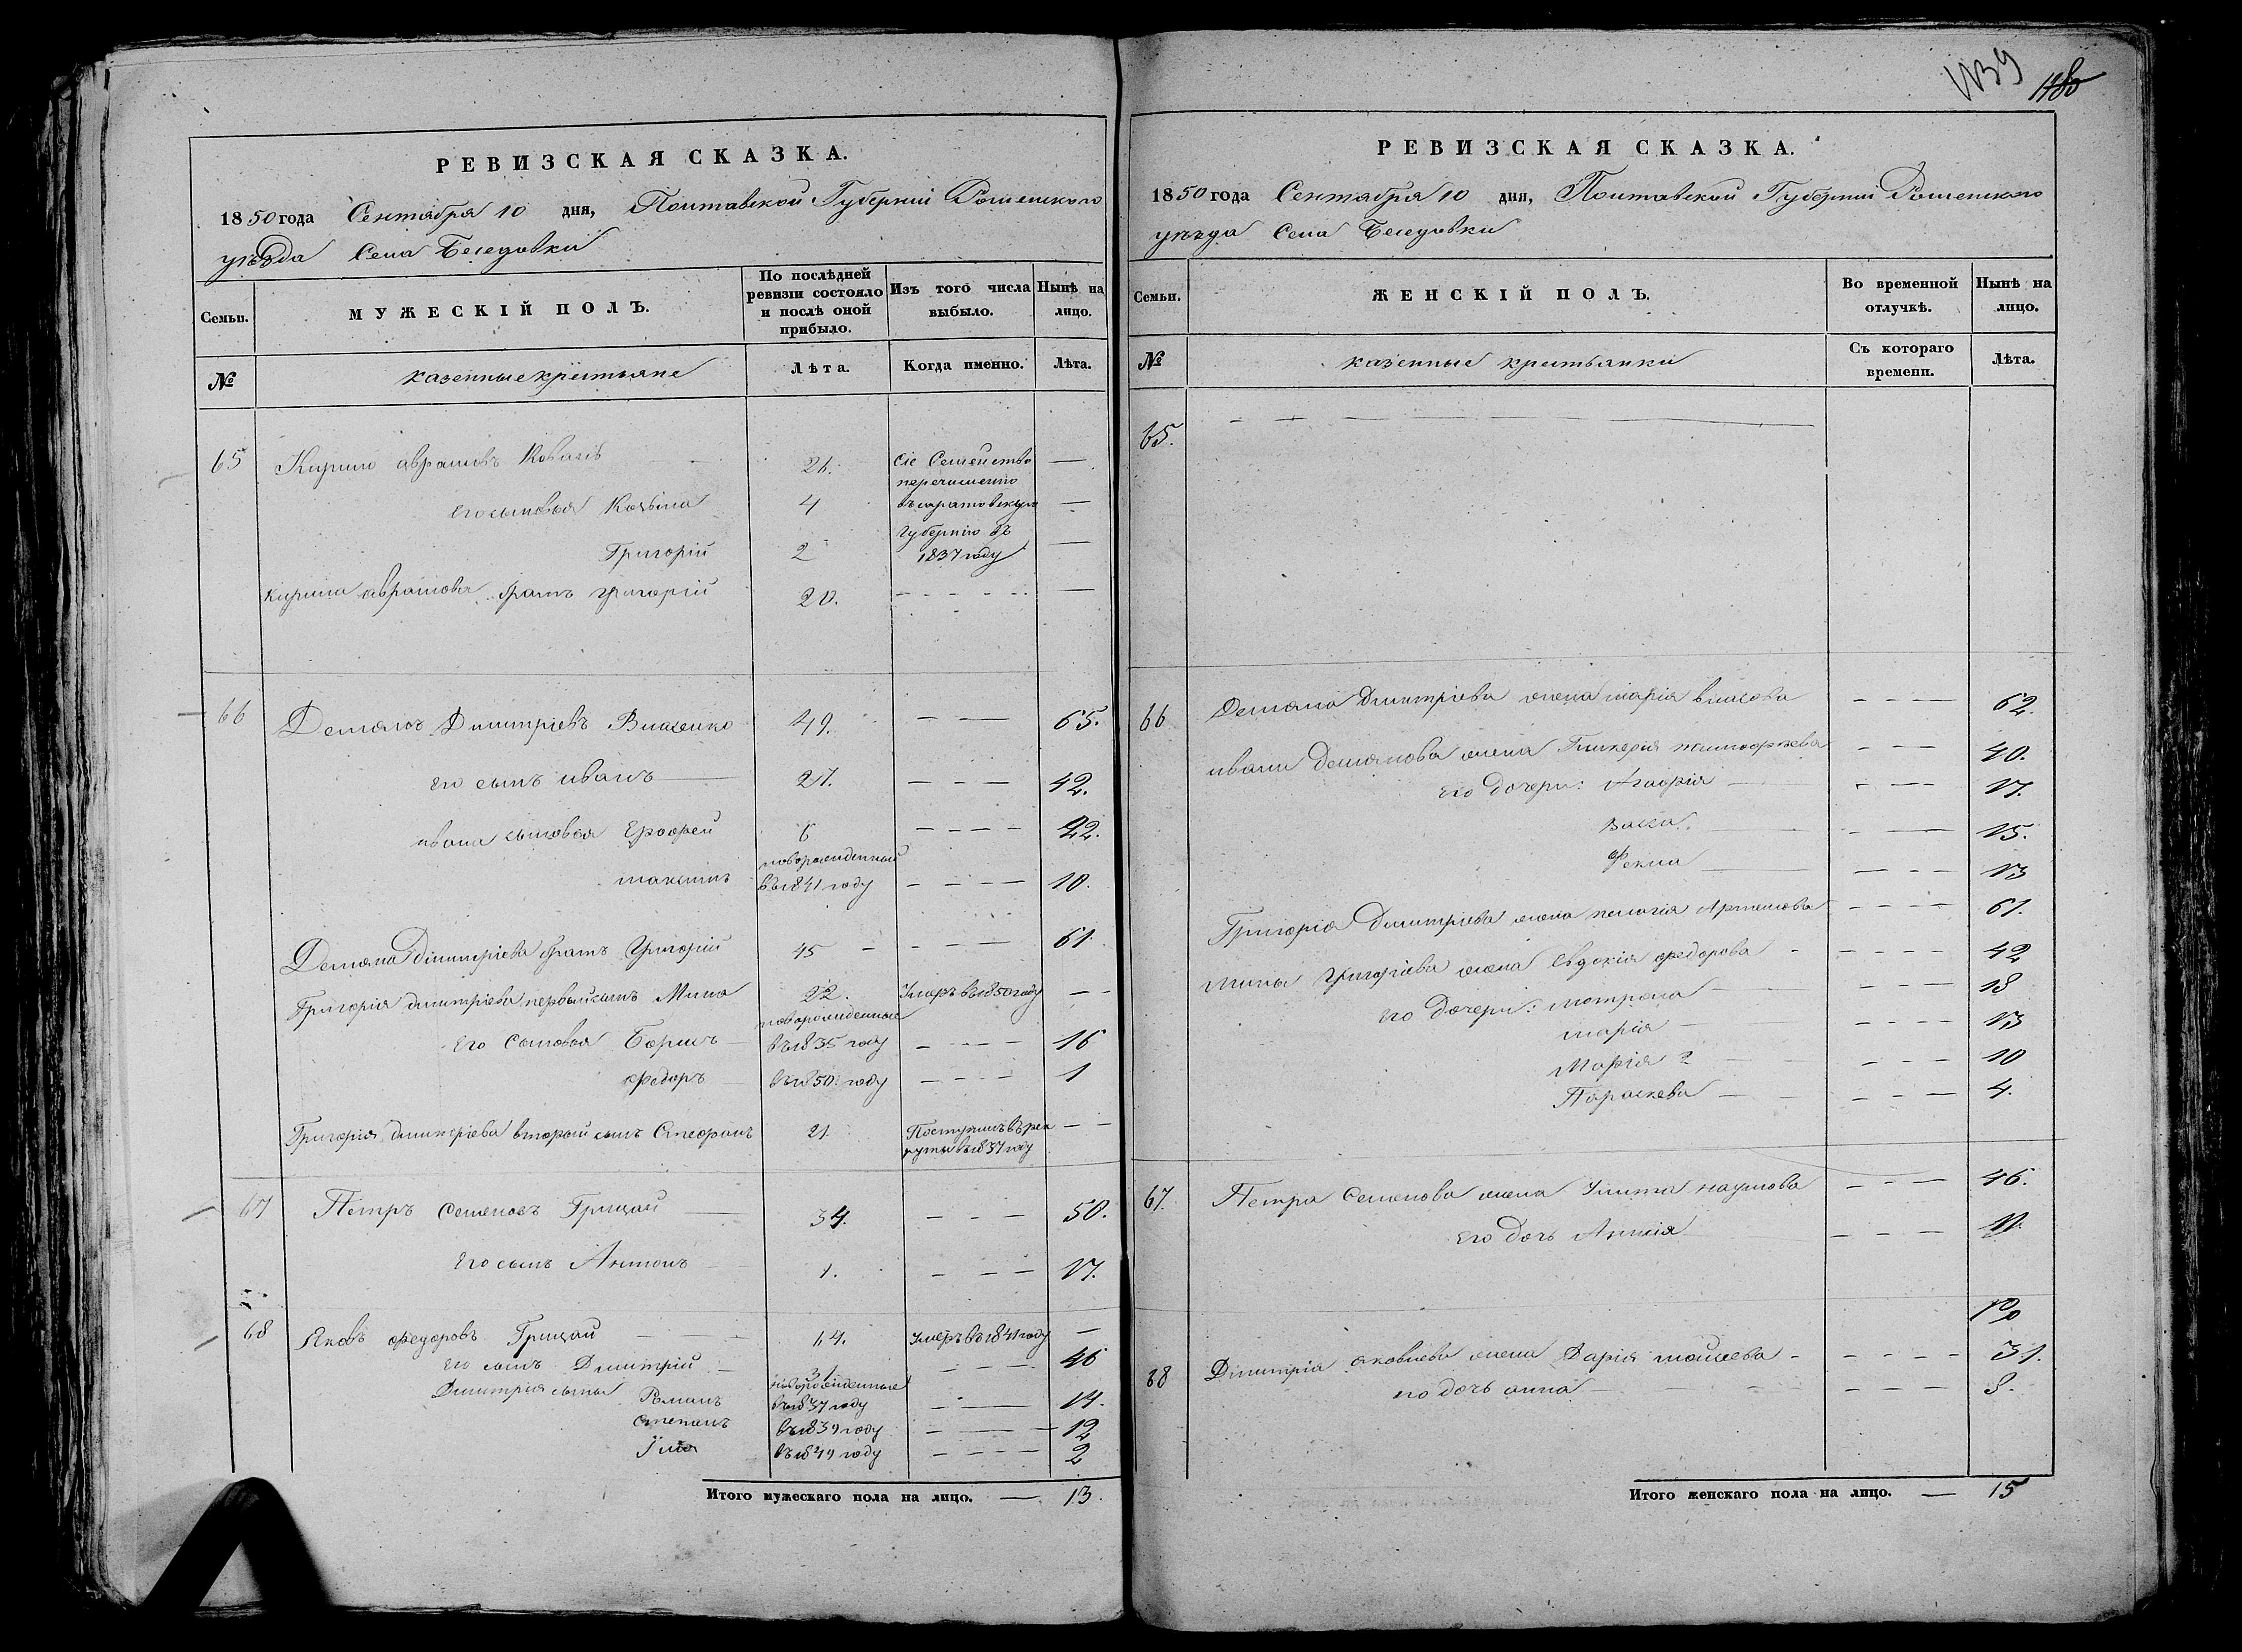 1139
1180
РЕВИЗСКАЯ СКАЗКА.
1850 года Сентября 10 дня, Полтавской Губернiи Роменского
уѣзда Села Беседовки
Семьи.
МУЖЕСКIЙ ПОЛЪ.
По послѣдней ревизiи состояло и послѣ оной прибыло.
Изъ того числа выбыло.
Нынѣ на лицо.
№
казенные крестьяне
Лѣта.
Когда именно.
Лѣта.
65 Кирило Аврамовъ Ковалѣв 26. сiе Семейство —
перечисленно
его сыновья Козьма 4 въ саратовскую —
Губернiю въ
Григорiй 2 1837 году —
Кирила аврамова братъ григорiй 20. —
66 Демянъ Димитрiевъ Власенко 49. — 65.
его сынъ иванъ 27. — 42.
ивана сыновья Ерофей 6 — 22.
новорожденный
максимъ въ 1841 году — 10.
Демяна Димитрiева братъ Григорiй 45 — 61.
Григорiя димитрiева первый сынъ Мина 22. Умеръ въ 1850 году —
новорожденные
его Сыновья Борисъ въ 1835 году — 16
Федоръ въ 1850. году — 1
Григорiя димитрiева второй сынъ Стефанъ 21. Поступилъ въ рек —
руты въ 1837 году
67 Петръ Семеновъ Грицай 34. — 50.
его сынъ Антонъ 1. — 17.
68 Яковъ федоровъ Грицай 64. Умеръ въ 1841 году —
его сынъ Димитрiй 31 — 46
новорожденные
Димитрiя сыны Романъ въ 1837 году — 14.
степанъ въ 1839 году — 12
въ 1849 году — 2
Итого мужескаго пола на лицо. — 13.
РЕВИЗСКАЯ СКАЗКА.
1850 года Сентября 10 дня, Полтавской Губернiи Роменского
уѣзда Села Беседовки
Семьи.
ЖЕНСКIЙ ПОЛЪ.
Во временной отлучкѣ.
Нынѣ на лицо.
№
казенные крестьянки
Съ котораго времени.
Лѣта.
65.
66 Демяна Димитрiева жена марiя власова — 62.
ивана Демянова жена Гликерiя — 40.
его дочери: Агафiя — 17.
Васса — 15.
Фекла — 13
Григорiя Димитрiева жена пелагiя Артемова — 61.
Мины Григорiева жена Евдокiя федорова — 42
его дочери: мотрона — 18
марiя — 13
Марiя 2 — 10
Параскева — 4.
67. Петра Семенова жена Улита наумова — 46.
его дочь — 11.
68 Димитрiя яковлева жена Дарiя моисеева — 31.
его дочь анна — 8.
Итого женскаго пола на лицо. — 15